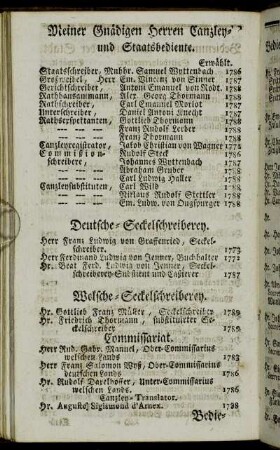 Meiner Gnädigen Herren Canzley-
und Staatsbediente.
Erwählt.
Staatsschreiber, Mnhbr. Samuel Wyttenbach 1786
Großweibel, Herr Em. Vincenz von Sinner 1786
Gerichtschreiber, Antoni Emanuel von Rodt. 1788
Rathhausammann, Alex. Georg Thormann 1788
Rathschreiber, Carl Emanuel Morlot 1787
Unterschreiber, Daniel Antoni Knecht 1787
Rathsexpektanten, Gottlieb Thormann 1787
— — — Franz Rudolf Lerber 1788
— — — Franz Thormann 1788
Canzleyregistrator, Jakob Christian von Wagner 1772
Commission- Rudolf Stek 1785
schreibere, Johannes Wyttenbach 1787
— — — Abraham Gruber 1788
— — — Carl Ludwig Haller 1788
Canzleysubstituten, Carl Wild 1788
— — — Niklaus Rudolf Stettler 1788
— — — Em. Ludw. von Ougspurger 1788
Deutsche-Seckelschreiberey.
Herr Franz Ludwig von Graffenried, Seckel-
schreiber. 1773
Herr Ferdinand Ludwig von Jenner, Buchhalter 1771
Hr. Beat Ferd. Ludwig von Jenner, Seckel-
schreiberey-Substitut und Caßierer 1787
Welsche-Seckelschreiberey.
Hr. Gottlieb Franz Müller, Seckelschreiber 1789
Hr. Friedrich Thormann, substituirter Se-
ckelschreiber 1789
Commissariat.
Herr Rud. Gabr. Manuel, Ober-Commissarius
welschen Lands 1783
Herr Franz Salomon Wyß, Ober-Commissarius
deutschen Lands 1786
Hr. Rudolf Daxelhoffer, Unter-Commissarius
welschen Lands. 1786
Canzley-Translator.
Hr. August Sigismund d'Arnex. 1788
Bedie-